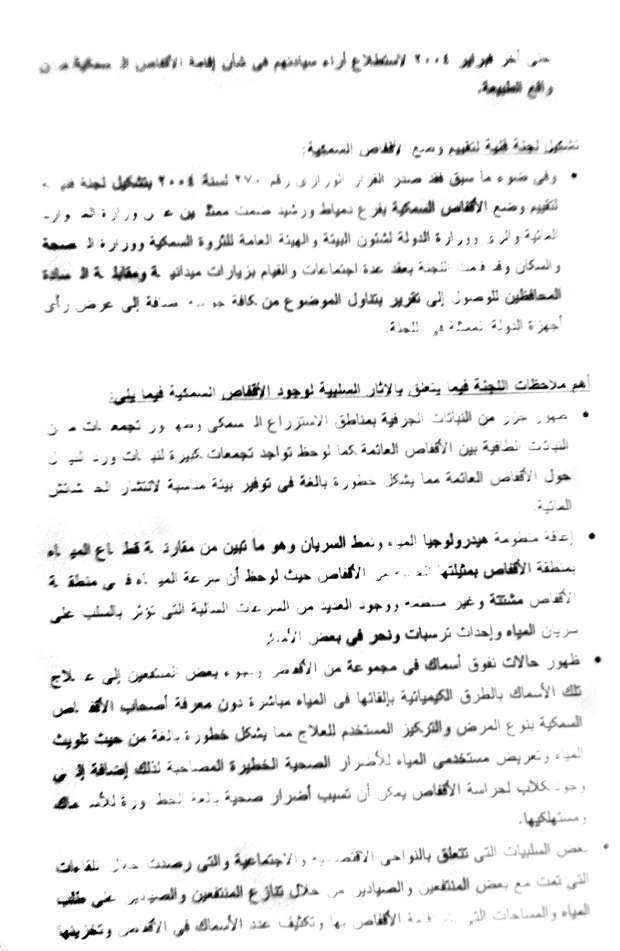 حتى آخر فبراير ٢٠٠٤ لاستطلاع آراء سيادتهم فى شأن إقامة الأقفاص السمكية من
واقع الطبيعة.
تشكيل لجنة فنية لتقييم وضع الأقفاص السمكية:
• وفى ضوء ما سبق فقد صدر القرار الوزارى رقم ٢٧٠ لسنة ٢٠٠٤ بتشكيل لجنة فنية
لتقييم وضع الأقفاص السمكية بفرع دمياط ورشيد ضمت ممثلين عن وزارة الموارد
المائية والرى ووزارة الدولة لشئون البيئة والهيئة العامة للثروة السمكية ووزارة الصحة
والسكان وقد قامت اللجنة بعقد عدة اجتماعات والقيام بزيارات ميدانية ومقابلة السادة
المحافظين للوصول إلى تقرير يتناول الموضوع من كافة إضافة إلى عرض رأى
أجهزة الدولة الممثلة فى اللجنة.
أهم ملاحظات اللجنة فيما يتعلق بالآثار السلبية لوجود الأقفاص السمكية فيما يلى:
• ظهور جزر من النباتات الجرفية بمناطق الاستزراع السمكى وظهور تجمعات من
النباتات الطافية بين الأقفاص العائمة كما لوحظ تواجد تجمعات كبيرة لنبات ورد النيل
حول الأقفاص العائمة مما يشكل خطورة بالغة فى توفير بيئة مناسبة لانتشار الحشائش
المائية.
• إعاقة منظومة هيدرولوجيا المياه ونمط السريان وهو ما تبين من مقارنة قطاع المياه
بمنطقة الأقفاص بمثيلتها الأقفاص حيث لوحظ أن سرعة المياه فى منطقة
الأقفاص مشتتة وغير منتظمة ووجود العديد من السرعات السالبة التى تؤثر بالسلب على
سريان المياه وإحداث ترسبات ونحر فى بعض الأماكن.
• ظهور حالات نفوق أسماك فى مجموعة من الأقفاص ولجوء بعض المنتفعين إلى علاج
تلك الأسماك بالطرق الكيميائية بإلقائها فى المياه مباشرة دون معرفة أصحاب الأقفاص
السمكية بنوع المرض والتركيز المستخدم للعلاج مما يشكل خطورة بالغة من حيث تلويث
المياه وتعريض مستخدمى المياه للأضرار الصحية الخطيرة المصاحبة لذلك إضافة إلى
وجود كلاب لحراسة الأقفاص يمكن أن تسبب أضرار صحية بالغة الخطورة للأسماك
ومستهلكيها.
• بعض السلبيات التى تتعلق بالنواحى الاقتصادية والاجتماعية والتى رصدت خلال اللقاءات
التى تمت مع بعض المنتفعين والصيادين من خلال تنازع المنتفعين والصيادين على طلب
المياه والمساحات التى إقامة الأقفاص بها وتكثيف عدد الأسماك فى الأقفاص وتخزينها